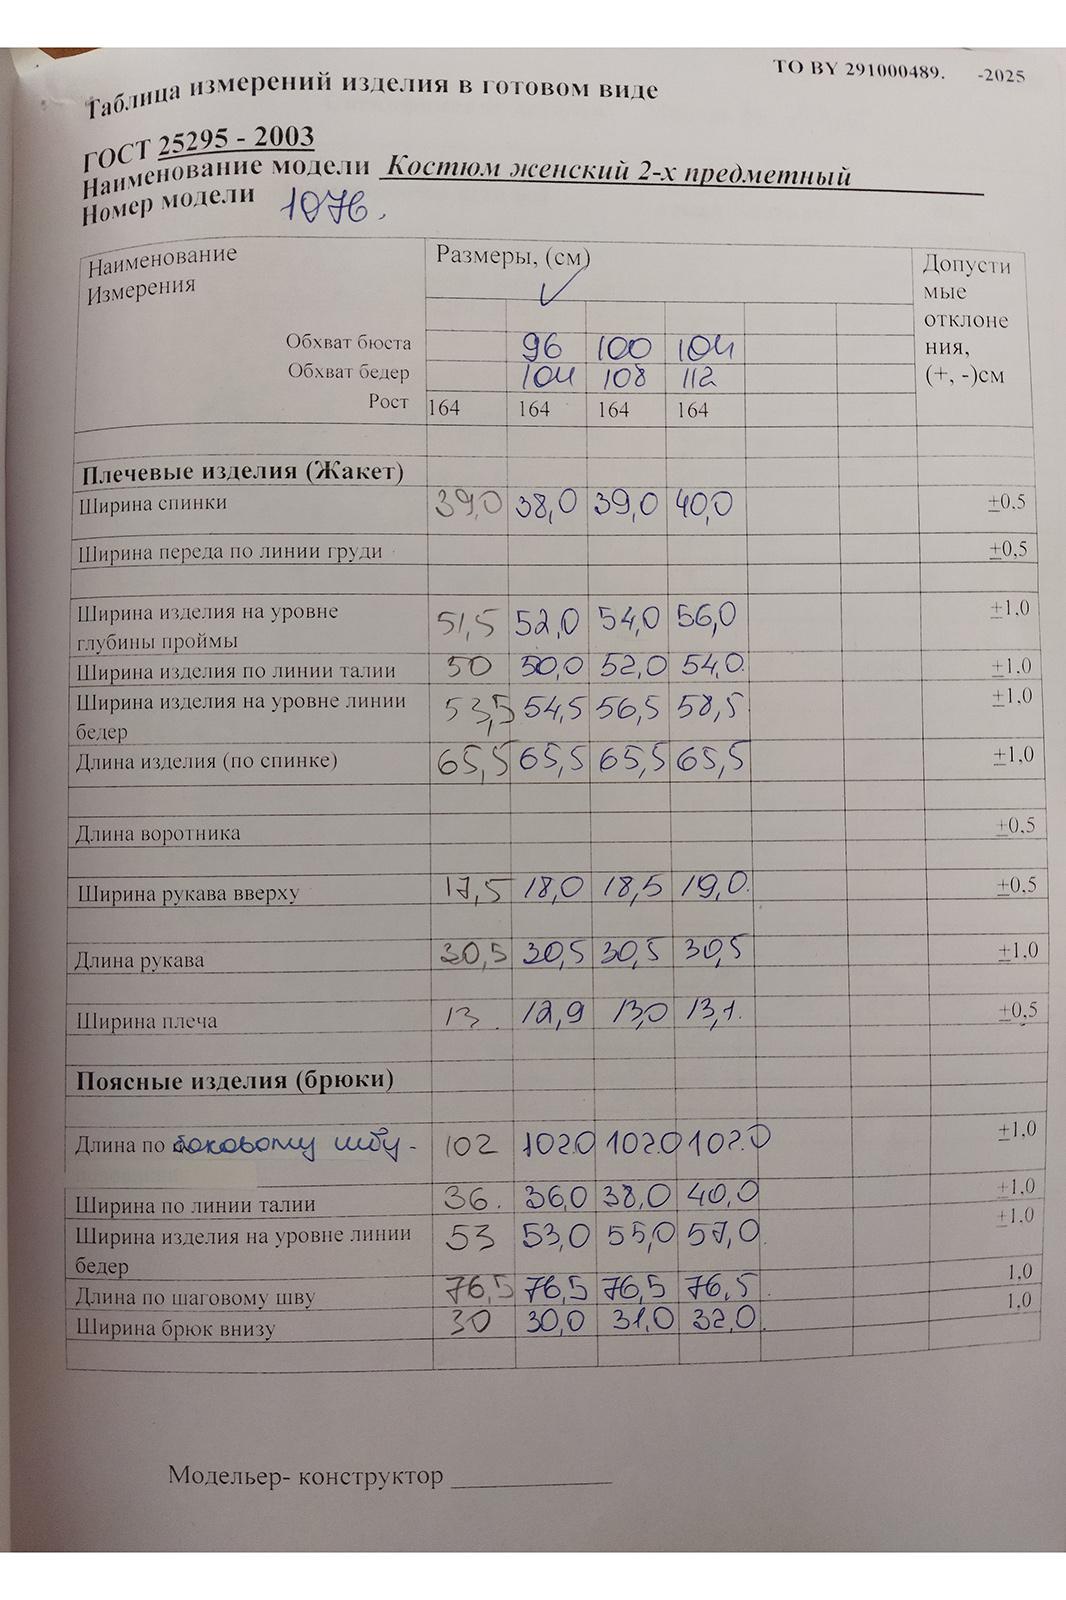 ТО BY 291000489. -2025
Таблица измерений изделия в готовом виде
ГОСТ 25295 - 2003
Наименование модели Костюм женский 2-х предметный
Номер модели 1076.
Наименование Измерения Размеры, (см) Допусти мые отклоне ния, (+, -)см
Обхват бюста 96 100 104
Обхват бедер 104 108 112
Рост 164 164 164 164
Плечевые изделия (Жакет)
Ширина спинки 39,0 38,0 39,0 40,0 ±0,5
Ширина переда по линии груди ±0,5
Ширина изделия на уровне глубины проймы 51,5 52,0 54,0 56,0 ±1,0
Ширина изделия по линии талии 50 50,0 52,0 54,0. ±1,0
Ширина изделия на уровне линии бедер 53,5 54,5 56,5 58,5 ±1,0
Длина изделия (по спинке) 65,5 65,5 65,5 65,5 ±1,0
Длина воротника ±0,5
Ширина рукава вверху 17,5 18,0 18,5 19,0. ±0,5
Длина рукава 30,5 30,5 30,5 30,5 ±1,0
Ширина плеча 13. 12,9 13,0 13,1. ±0,5
Поясные изделия (брюки)
Длина по боковому шву- 102 102.0 102.0 102.0 ±1,0
Ширина по линии талии 36. 36,0 38,0 40,0 ±1,0
Ширина изделия на уровне линии бедер 53 53,0 55,0 57,0. ±1,0
Длина по шаговому шву 76,5 76,5 76,5 76,5 1,0
Ширина брюк внизу 30 30,0 31,0 32,0. 1,0
Модельер- конструктор